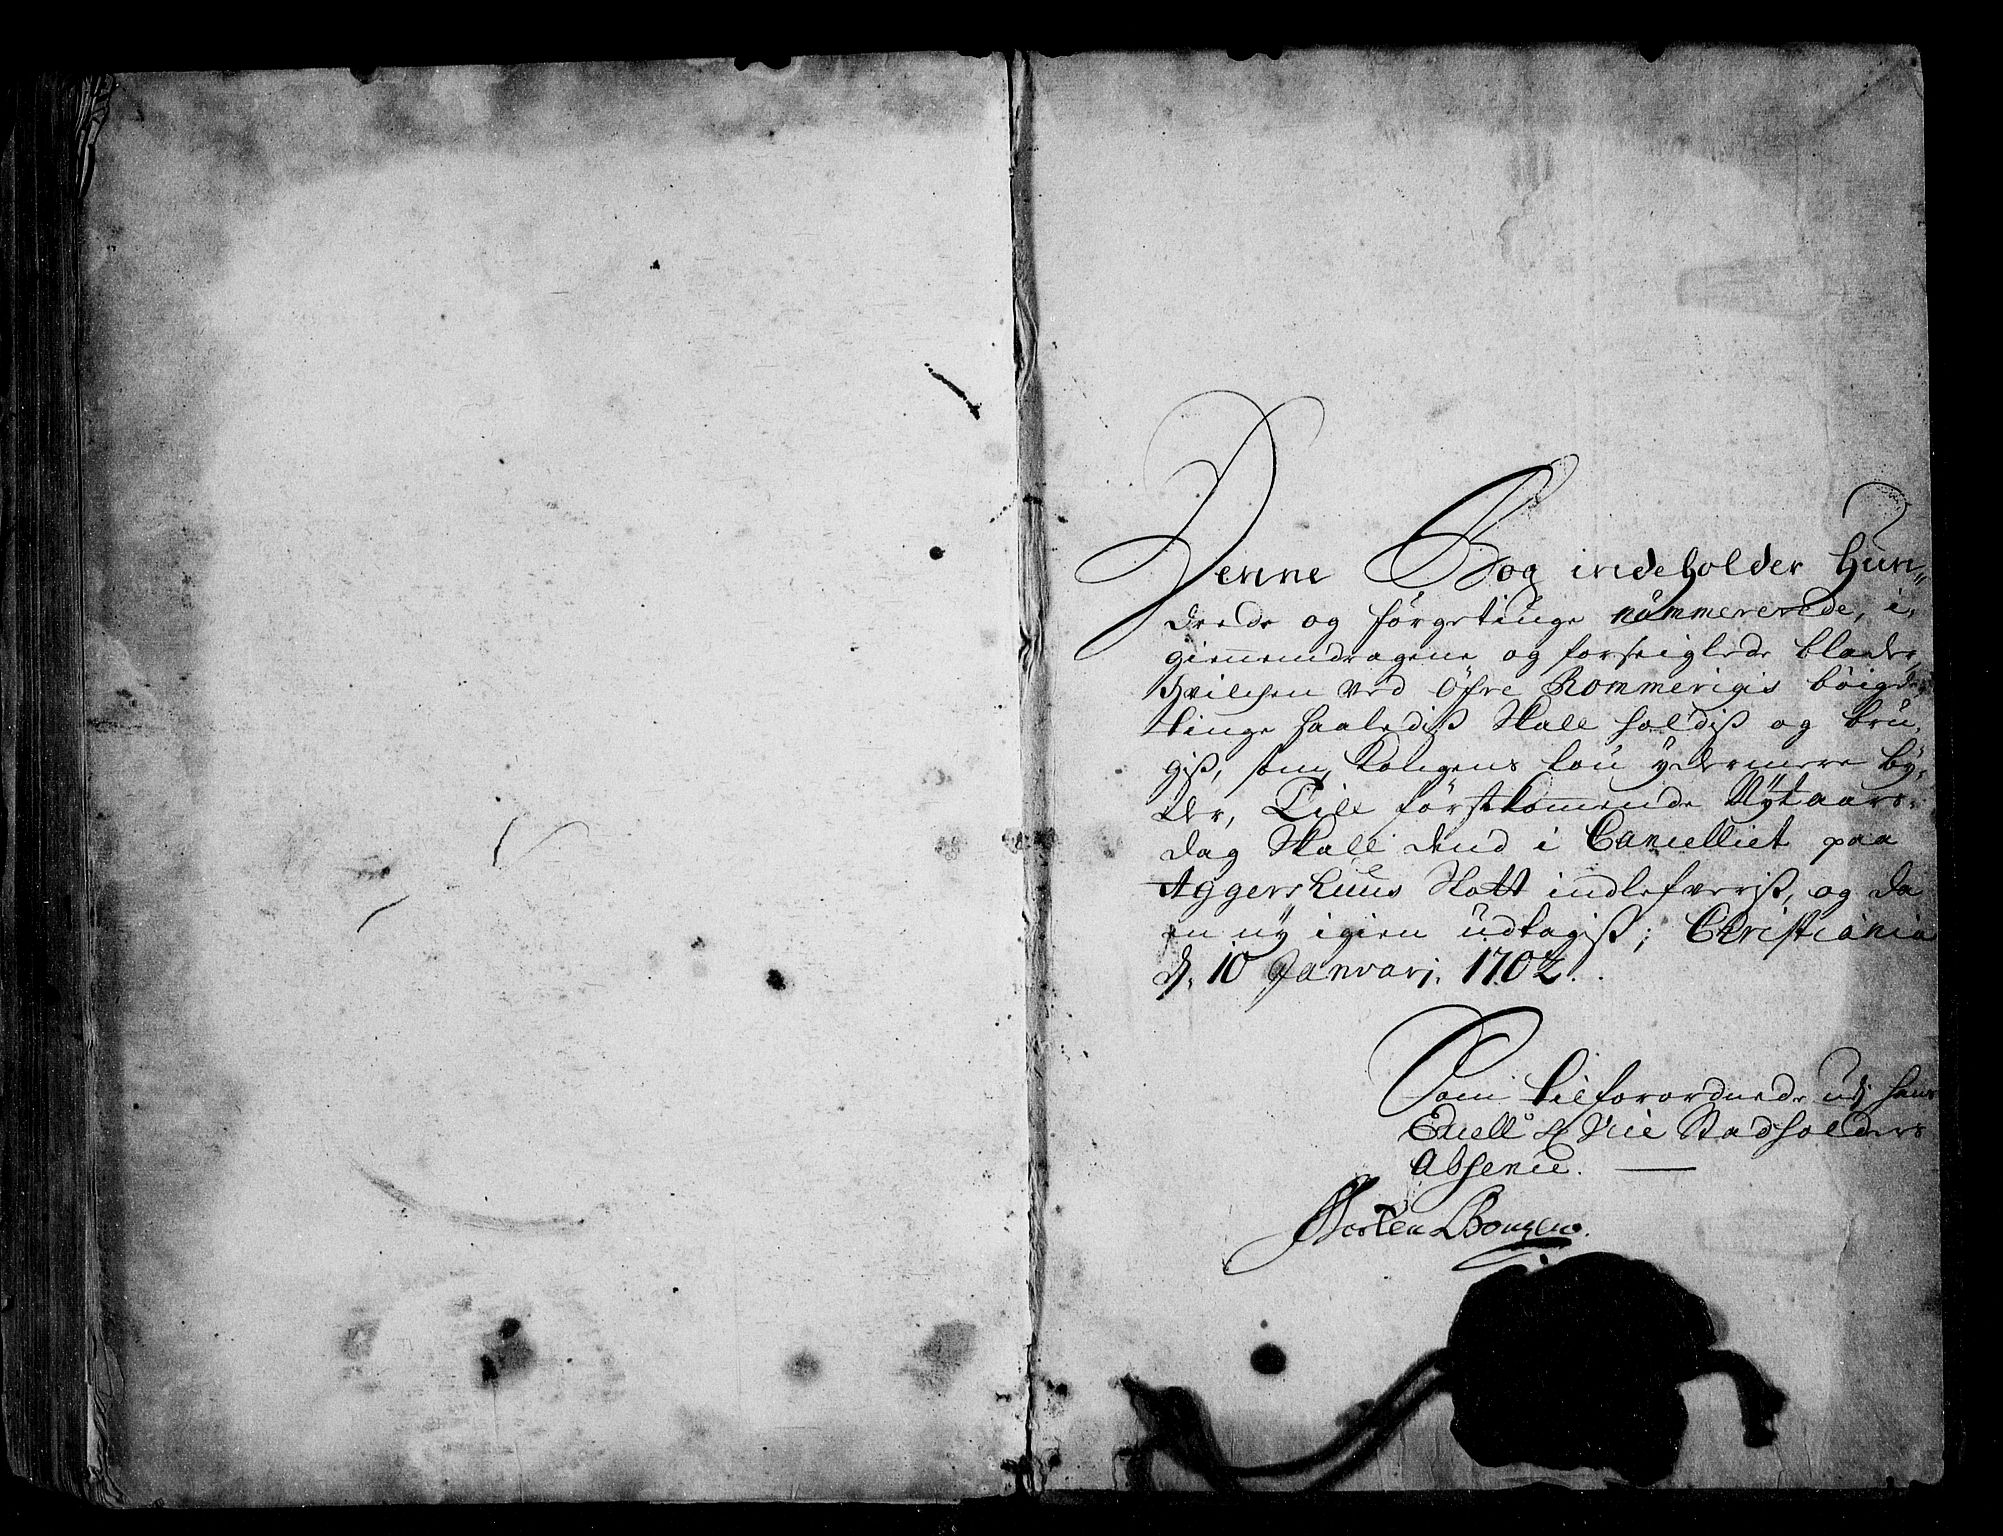 Denne Bog indeholder Hun„
drede og förgetiuge nümmererede, i„
giennemdragene og forseiglede blader,
Hvilchen ved Öfre Rommerigis böigde
tinge saalediß skall holdiß og brü„
giß, som Kongens lou ydermere bÿ„
der, Till förstkommende Nÿtaars„
dag skall dend i Cancelliet paa
Aggershuus Slott indlefveriß, og da
en ny igien udtagiß; Christiania
d. 10 Januarj. 1702.
Som tilforordnede udj hans
Excell: H Vice Stadholders
Absence.
Morten